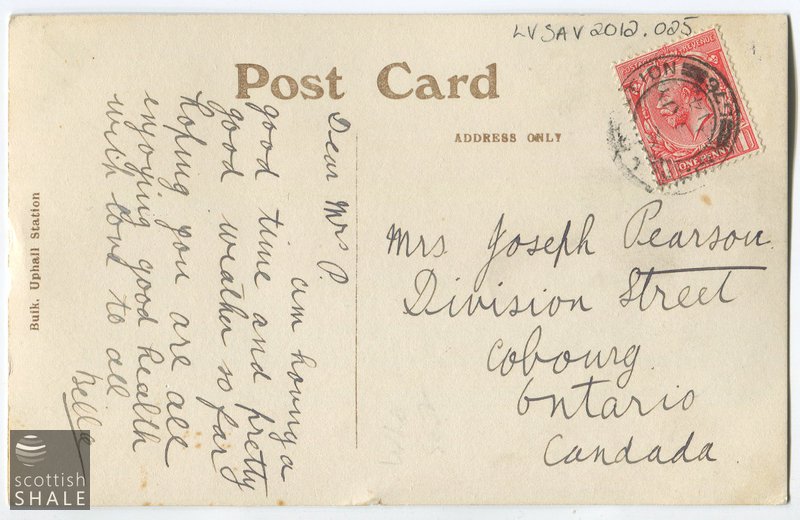 LVSAV2012.025
Post Card
ADDRESS ONLY
ONE PENNY
Dear Mrs P.
am having a
good time and pretty
good weather so far
hoping you are all
enjoying good health
with love to all
Belle
Mrs Joseph Pearson
Division Street
Cobourg
Ontario
Candada
Buik, Uphall Station
scottish
SHALE